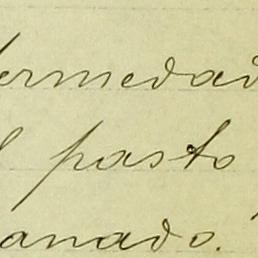 fermedad
l pasto
anado.